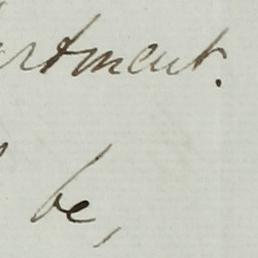 artment.
be,